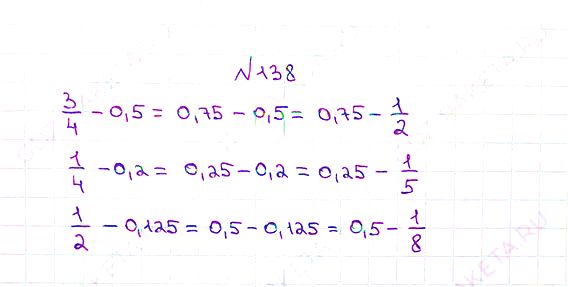 N138
3/4 - 0,5 = 0,75 - 0,5 = 0,75 - 1/2
1/4 - 0,2 = 0,25 - 0,2 = 0,25 - 1/5
1/2 - 0,125 = 0,5 - 0,125 = 0,5 - 1/8